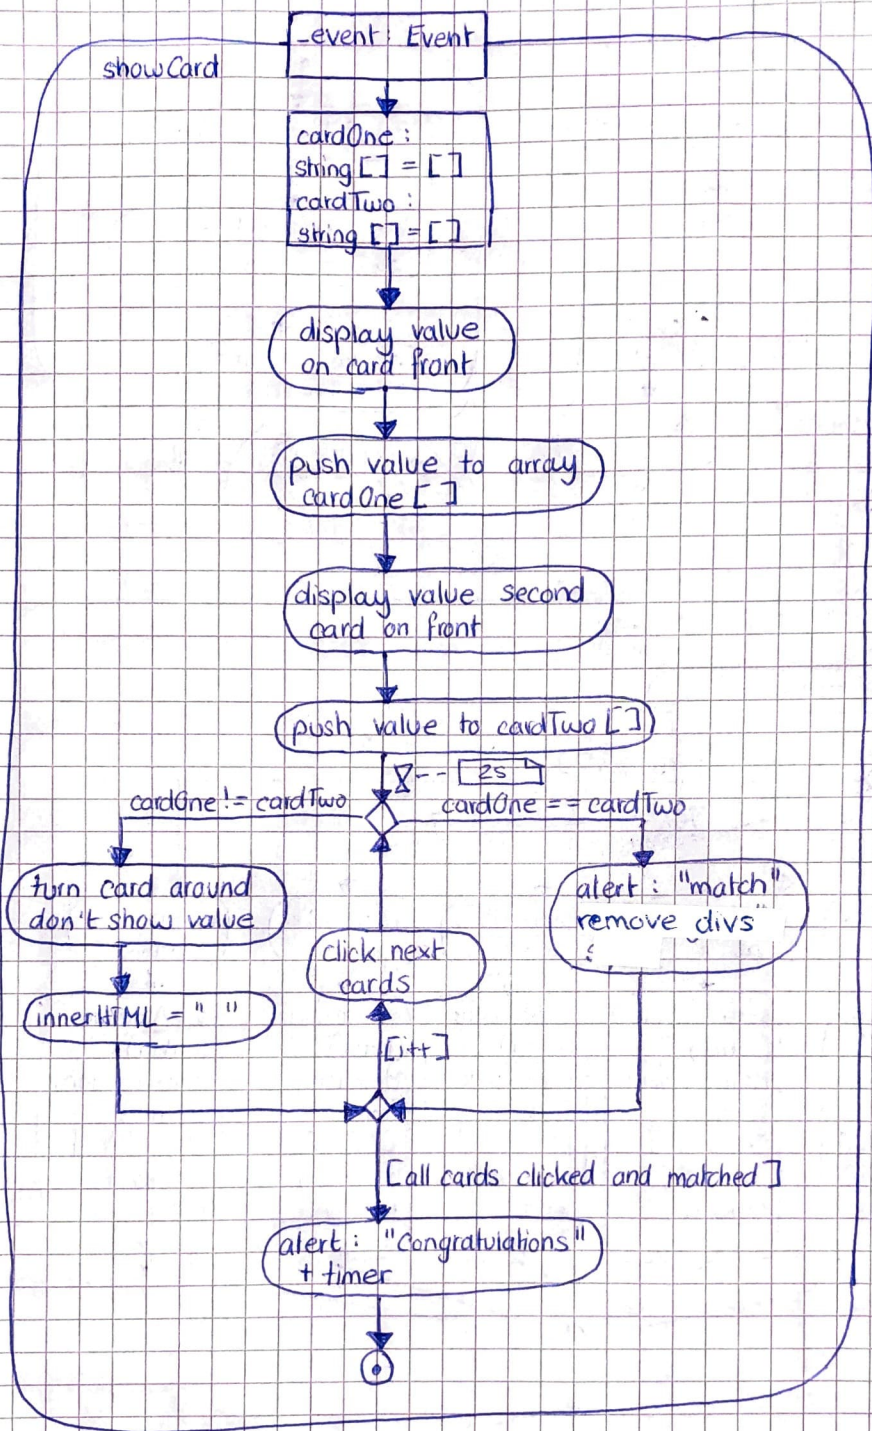 _event: Event
showCard
cardOne:
string[] = []
cardTwo:
string[] = []
display value
on card front
push value to array
cardOne[ ]
display value second
card on front
push value to cardTwo[]
2s
cardOne != cardTwo
cardOne == cardTwo
turn card around
don't show value
alert: "match"
remove divs
click next
cards
innerHTML = " "
[i++]
[all cards clicked and matched]
alert: "Congratulations"
+ timer